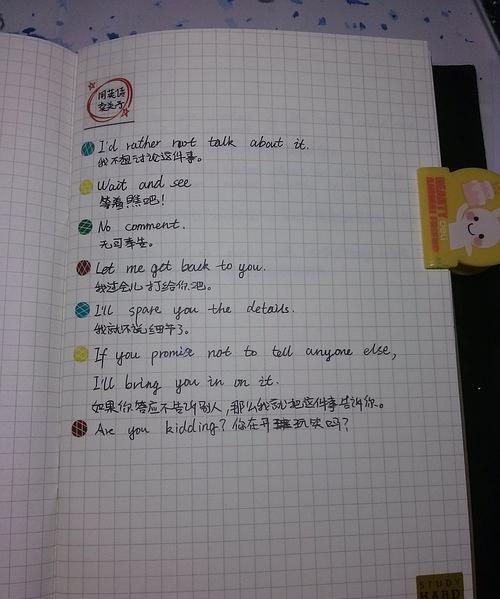 用英语
卖关子
I'd rather not talk about it.
我不想讨论这件事。
Wait and see
等着瞧吧!
No comment.
无可奉告。
Let me get back to you.
我过会儿打给你吧。
I'll spare you the details.
我就不说细节了。
If you promise not to tell anyone else,
I'll bring you in on it.
如果你答应不告诉别人,那么我就把这件事告诉你。
Are you kidding? 你在开玩笑吗?
STUDY
HARD